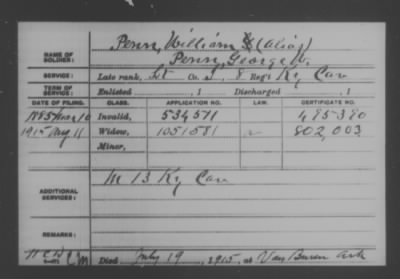 NAME OF SOLDIER: Penn, William (alias)
Penn, George W.
SERVICE: Late rank, Co. I, 8 Reg't Ky Cav
TERM OF SERVICE: Enlisted , 1 Discharged , 1
DATE OF FILING. CLASS. APPLICATION NO. LAW. CERTIFICATE NO.
1885 Mar 10 Invalid, 534571 495390
1915 Aug 11 Widow, 1051581 802,003
Minor,
ADDITIONAL SERVICES: M 13 Ky Cav
REMARKS:
Died July 19, 1915, at Van Buren Ark